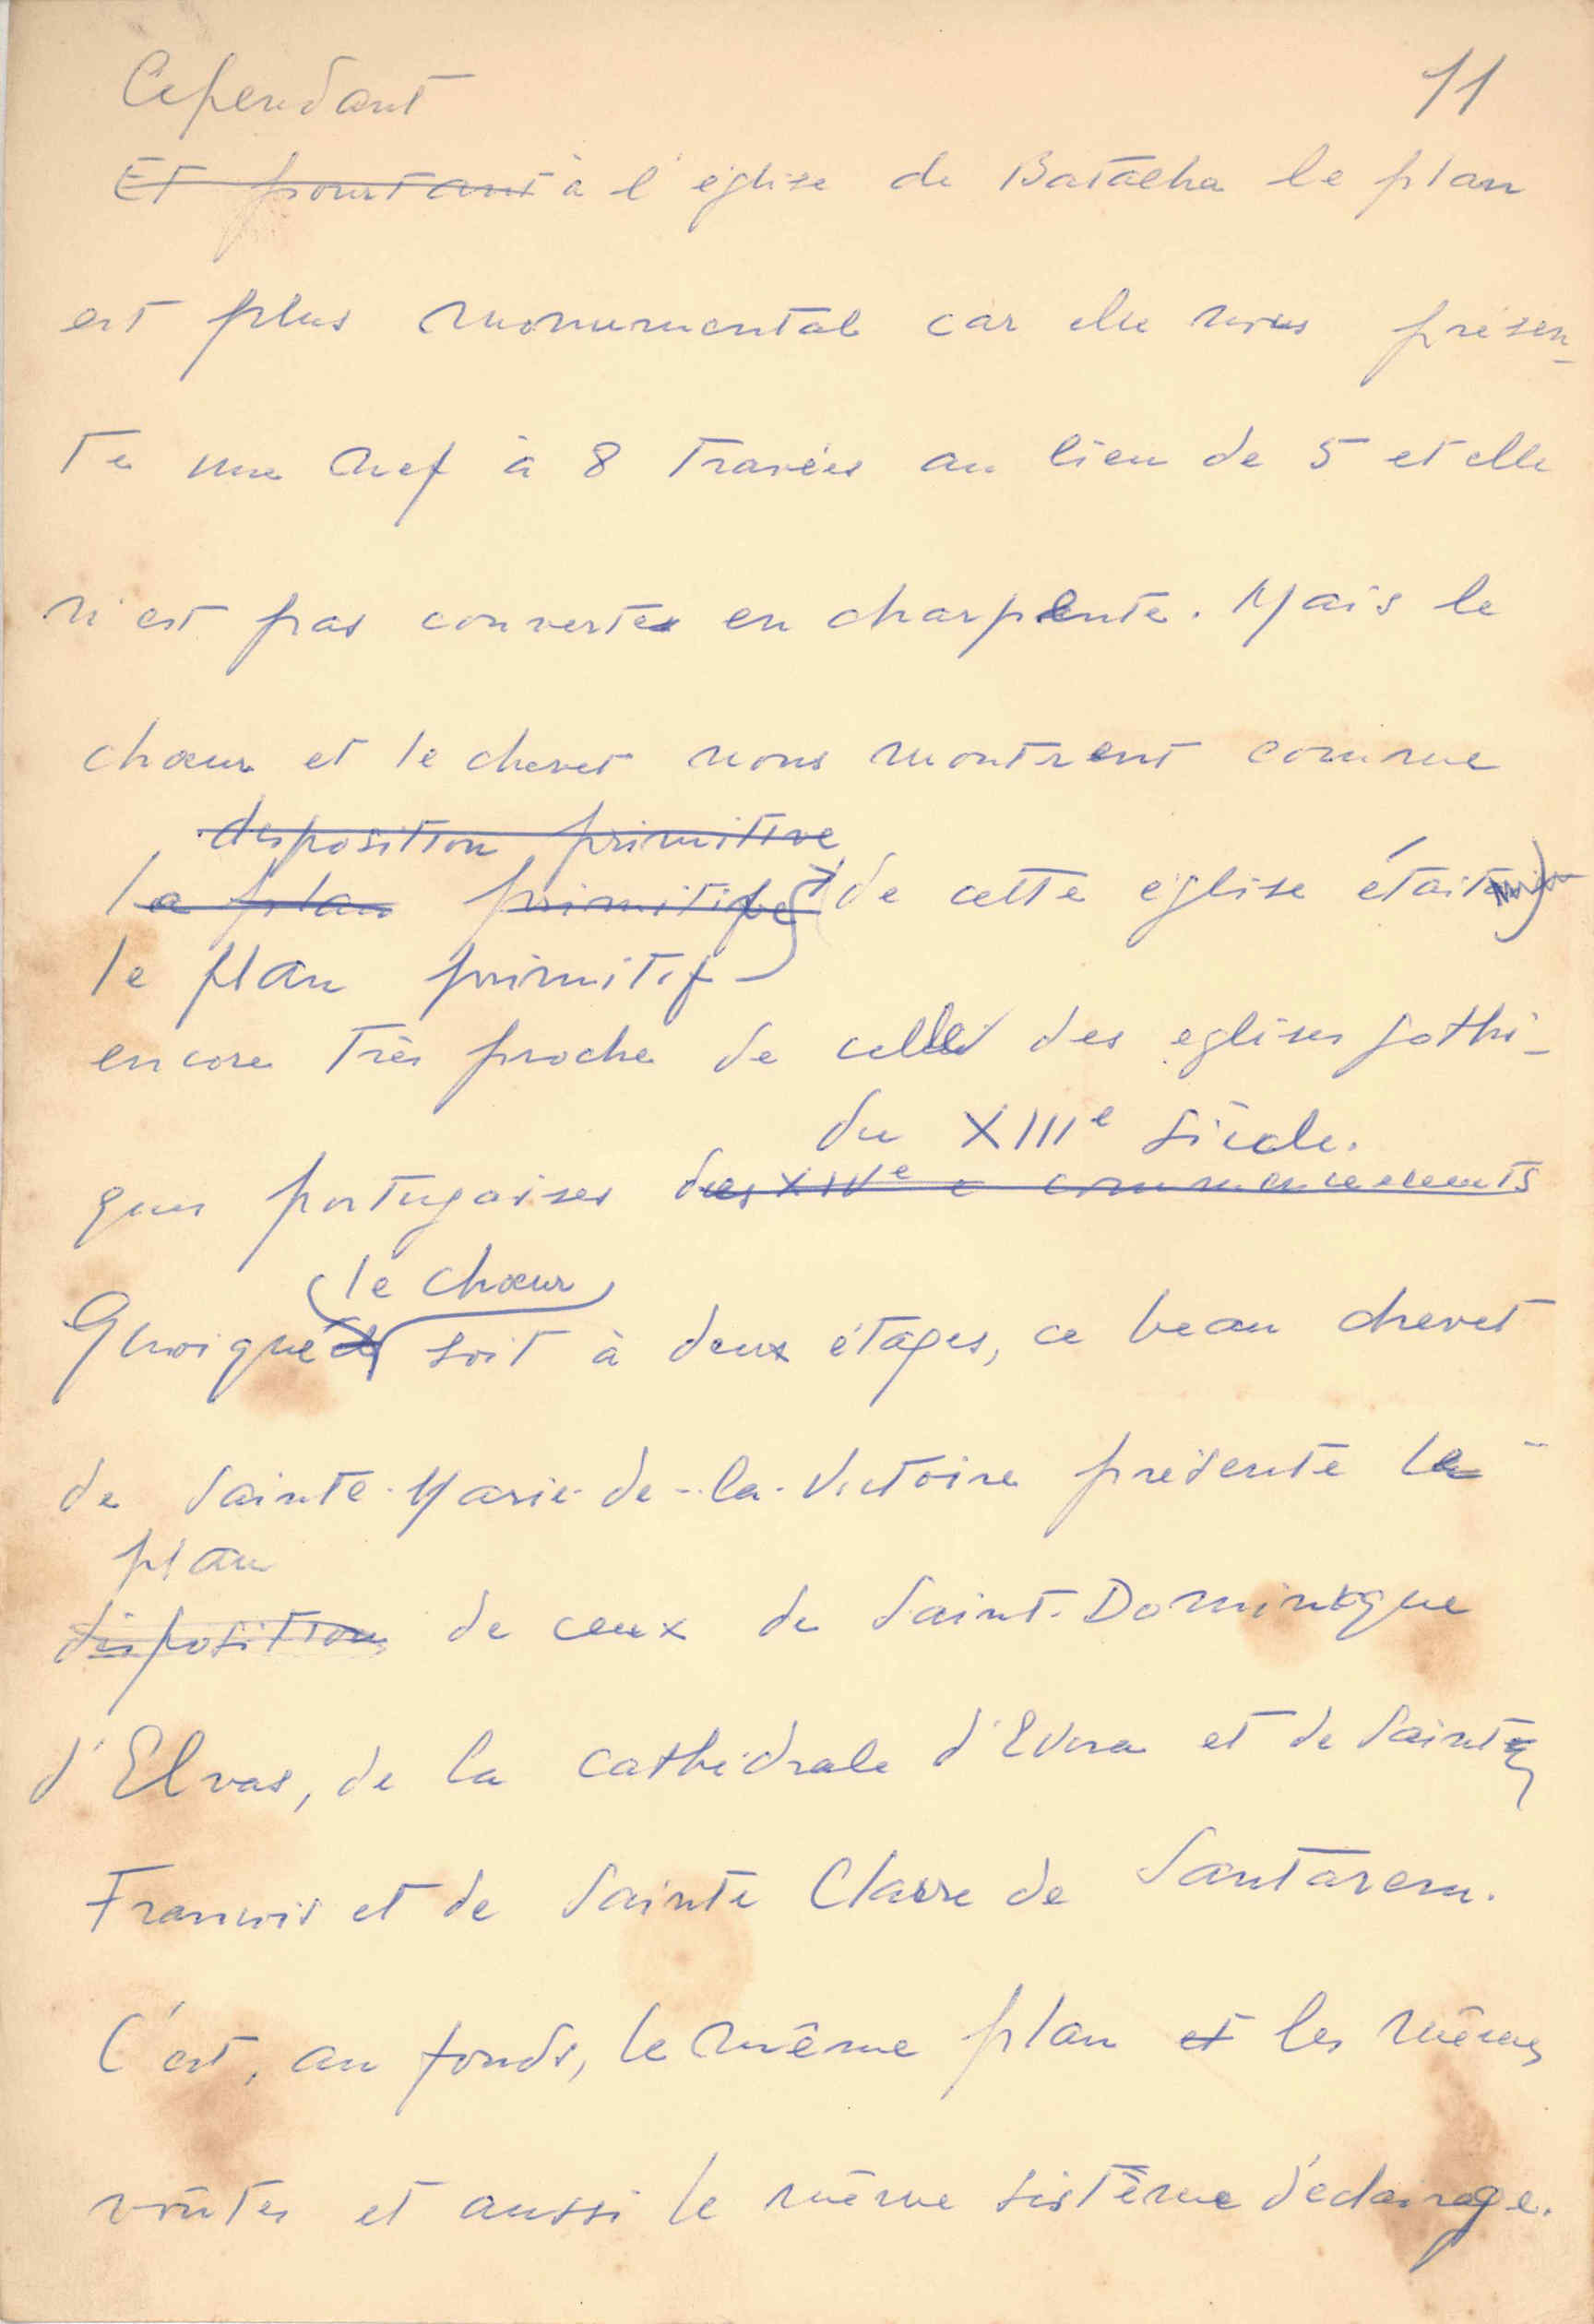 Cependant
11
Et pourtant à l'église de Batalha le plan
est plus monumental car elle nous présen-
te une nef à 8 travées au lieu de 5 et elle
n'est pas couverte en charpente. Mais le
chœur et le chevet nous montrent comme
disposition primitive
la plan primitive de cette eglise était
le plan primitif
encore très proche de celle des eglises gothi-
ques portugaises des XIVe e commencements
du XIIIe siècle.
le chœur
Quoique soit à deux étages, ce beau chevet
de Sainte-Marie-de-la-Victoire présente le
plan
disposition de ceux de Saint-Dominique
d'Elvas, de la cathédrale d'Evora et de Saint
François et de Sainte Claire de Santarem.
C'est, au fonds, le même plan et les mêmes
voûtes et aussi le même sistème d'eclairage.